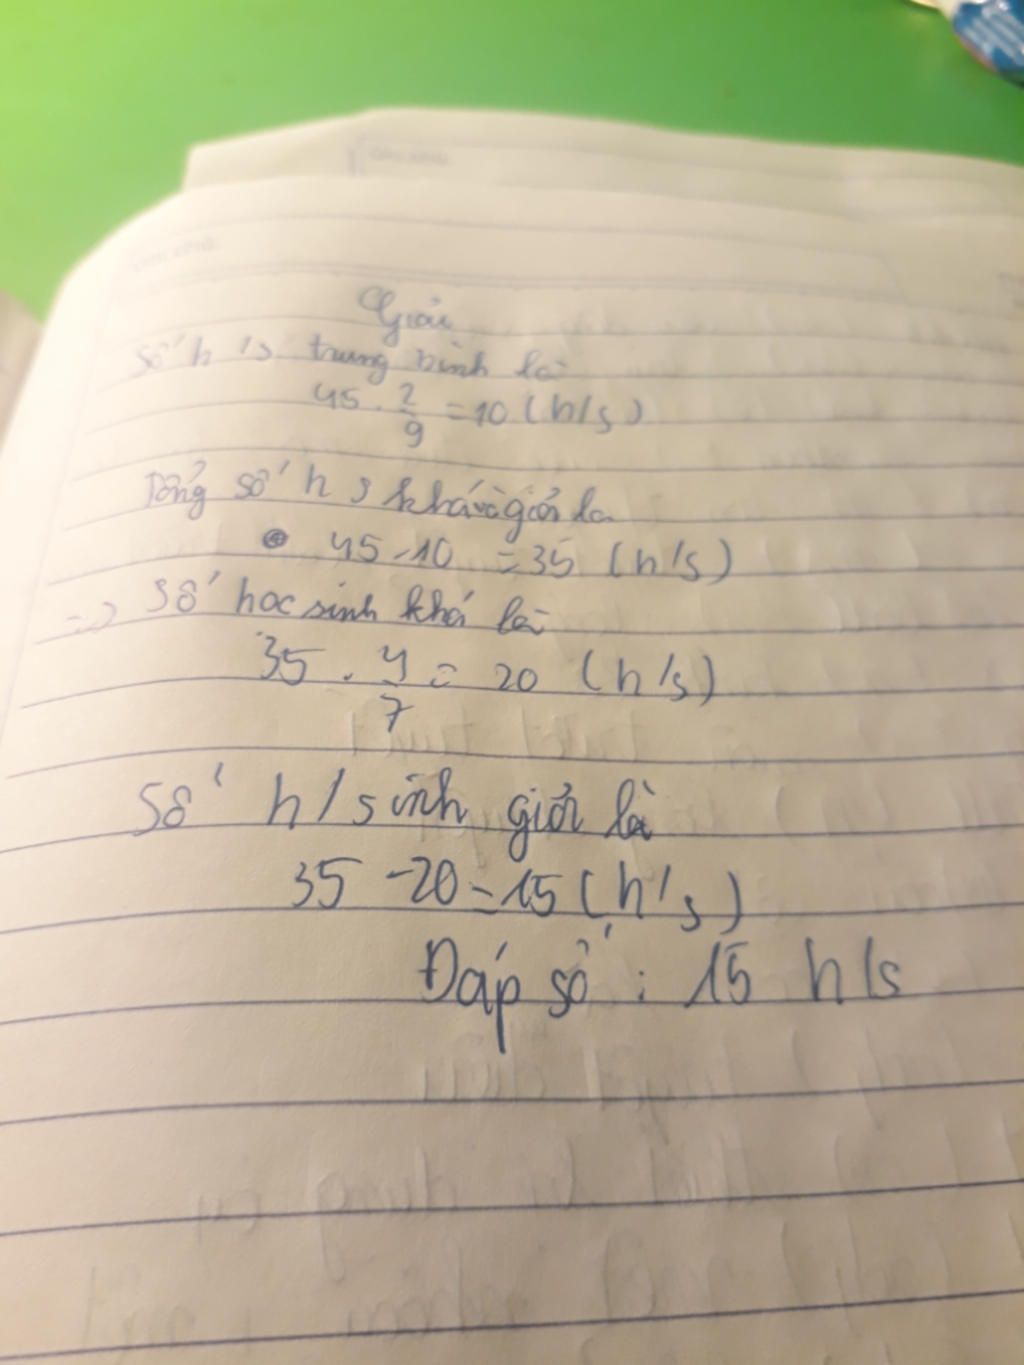 Giải
Số h/s trung bình là
45 . 2/9 = 10 (h/s)
Tổng số h s khá và giỏi là
45 - 10 = 35 (h/s)
=> Số học sinh khá là
35 . 4/7 = 20 (h/s)
Số h/sinh giỏi là
35 - 20 = 15 (h/s)
Đáp số : 15 h/s